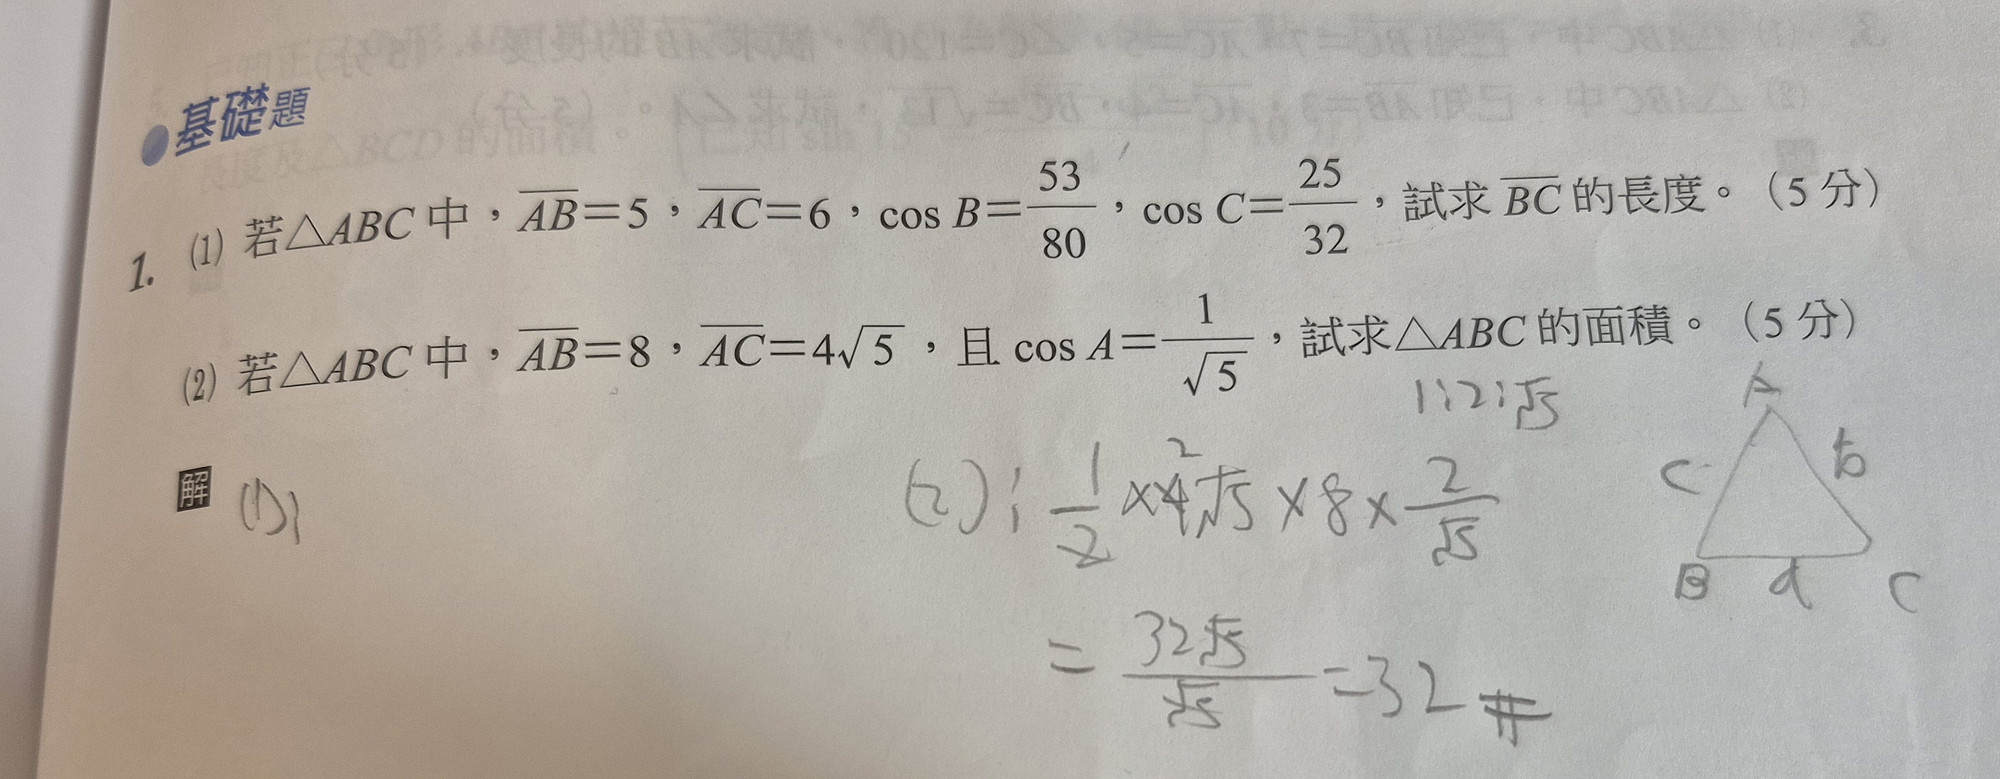 基礎題
1. (1) 若△ABC 中，AB=5，AC=6，cos B=53/80，cos C=25/32，試求 BC 的長度。（5 分）
(2) 若△ABC 中，AB=8，AC=4√5，且 cos A=1/√5，試求△ABC 的面積。（5 分）
1:2:√5
解 (1):
(2): 1/2 × 4² √5 × 8 × 2/√5
= 32√5/√5 = 32 #
A
c b
B a C